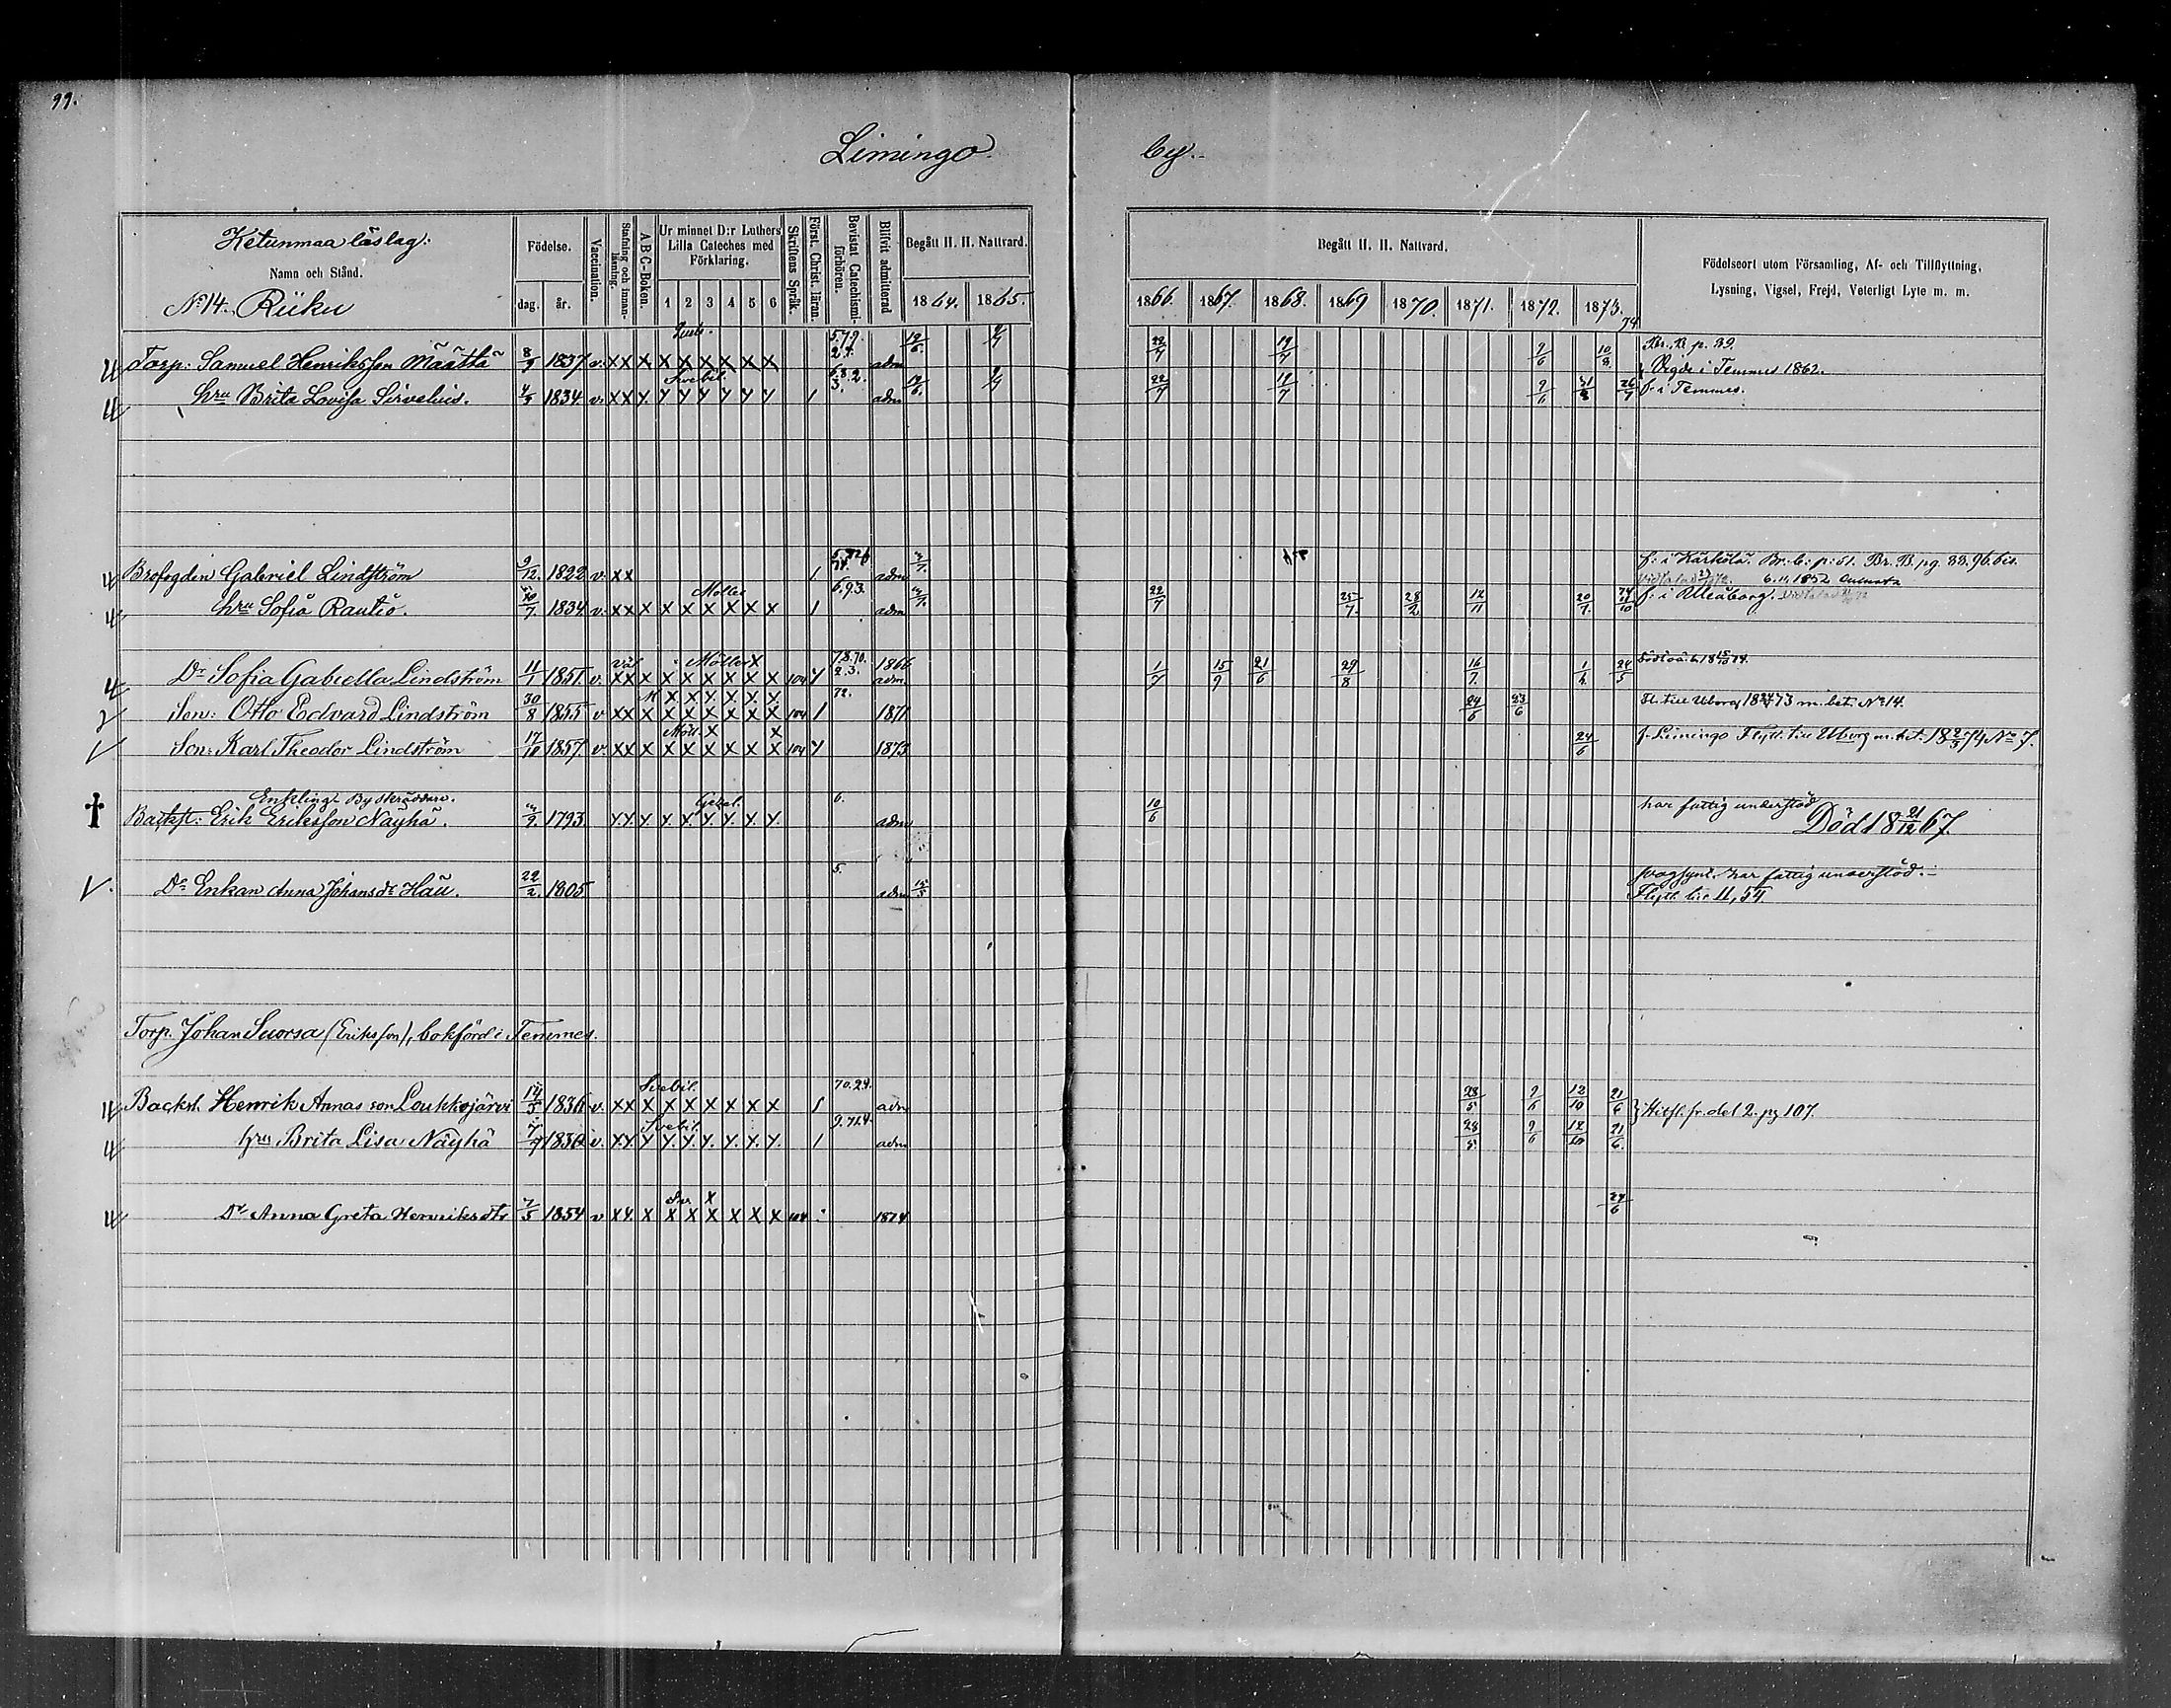 99.
Limingo by.
Ketunmaa läslag:
Namn och Stånd.
No 14. Riiku
Födelse.
dag. år.
Vaccination.
Stafning och innan-läsning.
A B C-Boken.
Ur minnet D:r Luthers Lilla Cateches med Förklaring.
1 2 3 4 5 6
Skriftens Språk.
Först. Christ. läran.
Bevistat Catechismi-förhören.
Blifvit admitterad
Begått H. H. Nattvard.
1864. 1865.
Begått H. H. Nattvard.
1866. 1867. 1868. 1869 1870. 1871. 1872. 1873. 74
Födelseort utom Församling, Af- och Tillflyttning,
Lysning, Vigsel, Frejd, Veterligt Lyte m. m.
Torp: Samuel Henriksson Määttä 8/9 1837 v. x x x x x x x x x adm 12/6. 22/7 12/7 9/6 10/8 Br. B. p. 39.
Vigde i Temmes 1862.
hru Brita Lovisa Sirvelius. 4/3 1834 v. x x y. y y y y y y 1 adm 12/6. 22/7 12/7 9/6 26/7 f. i Temmes.
Brofogden Gabriel Lindström 9/12. 1822 v. x x 1 adm f: i Kärkölä. Br. b: p: 51. Br. B. pg. 33. 96. bis.
Möller
hru Sofia Rautio. 1834 v. x x x x x x x x x 1 adm 22/7 25/7. 28/2 12/11 20/7. f. i Uleåborg.
Väl Möller x 7.8.70. 2.3. 1866
Dr Sofia Gabriella Lindström 11/1 1851. v. x x x x x x x x x 104 adm. 1/7 15/9 21/6 29/8 16/7. 24/5
Son: Otto Edvard Lindström 30/8 1855 v x x x x x x x x x 104 1 72. 1871 24/6 23/6 Fl. till Uborg 1873 m. bet. No 14.
Son: Karl Theodor Lindström 17/10 1857. v. x x x x x x x x x 104 1873 24/6 f. Limingo Flytt. till Uborg m. bet. 18 2/3 74 No 7.
Enkling Byskräddare.
Backst: Erik Eriksson Näyhä. 1793 y y y. y. y. y. y. y. y. 6. adm 10/6 har fattig understöd
Död 18 21/12 67.
Dr Enkan Anna Johansdr Hau. 22/2. 1805 5. adm svagsynt. har fattig understöd.
Flytt. till II, 54.
Torp. Johan Suorsa (Eriksson), bokförd i Temmes.
Svebil. 70.24.
Backst. Henrik Annas son Loukkojärvi 14/5 1836 v. x x x x x x x x x 1 adm 28/5 9/6 12/10 21/6 } Hitfl. fr. del 2. pg 107.
Svebil.
hru Brita Lisa Näyhä 1836 v. y y. y y. y. y. y. y. y. 1 adm 28/5. 9/6 12/10 21/6.
Dr Anna Greta Henriksdtr 1854 v x x x x x x x x x 104 1874 24/6